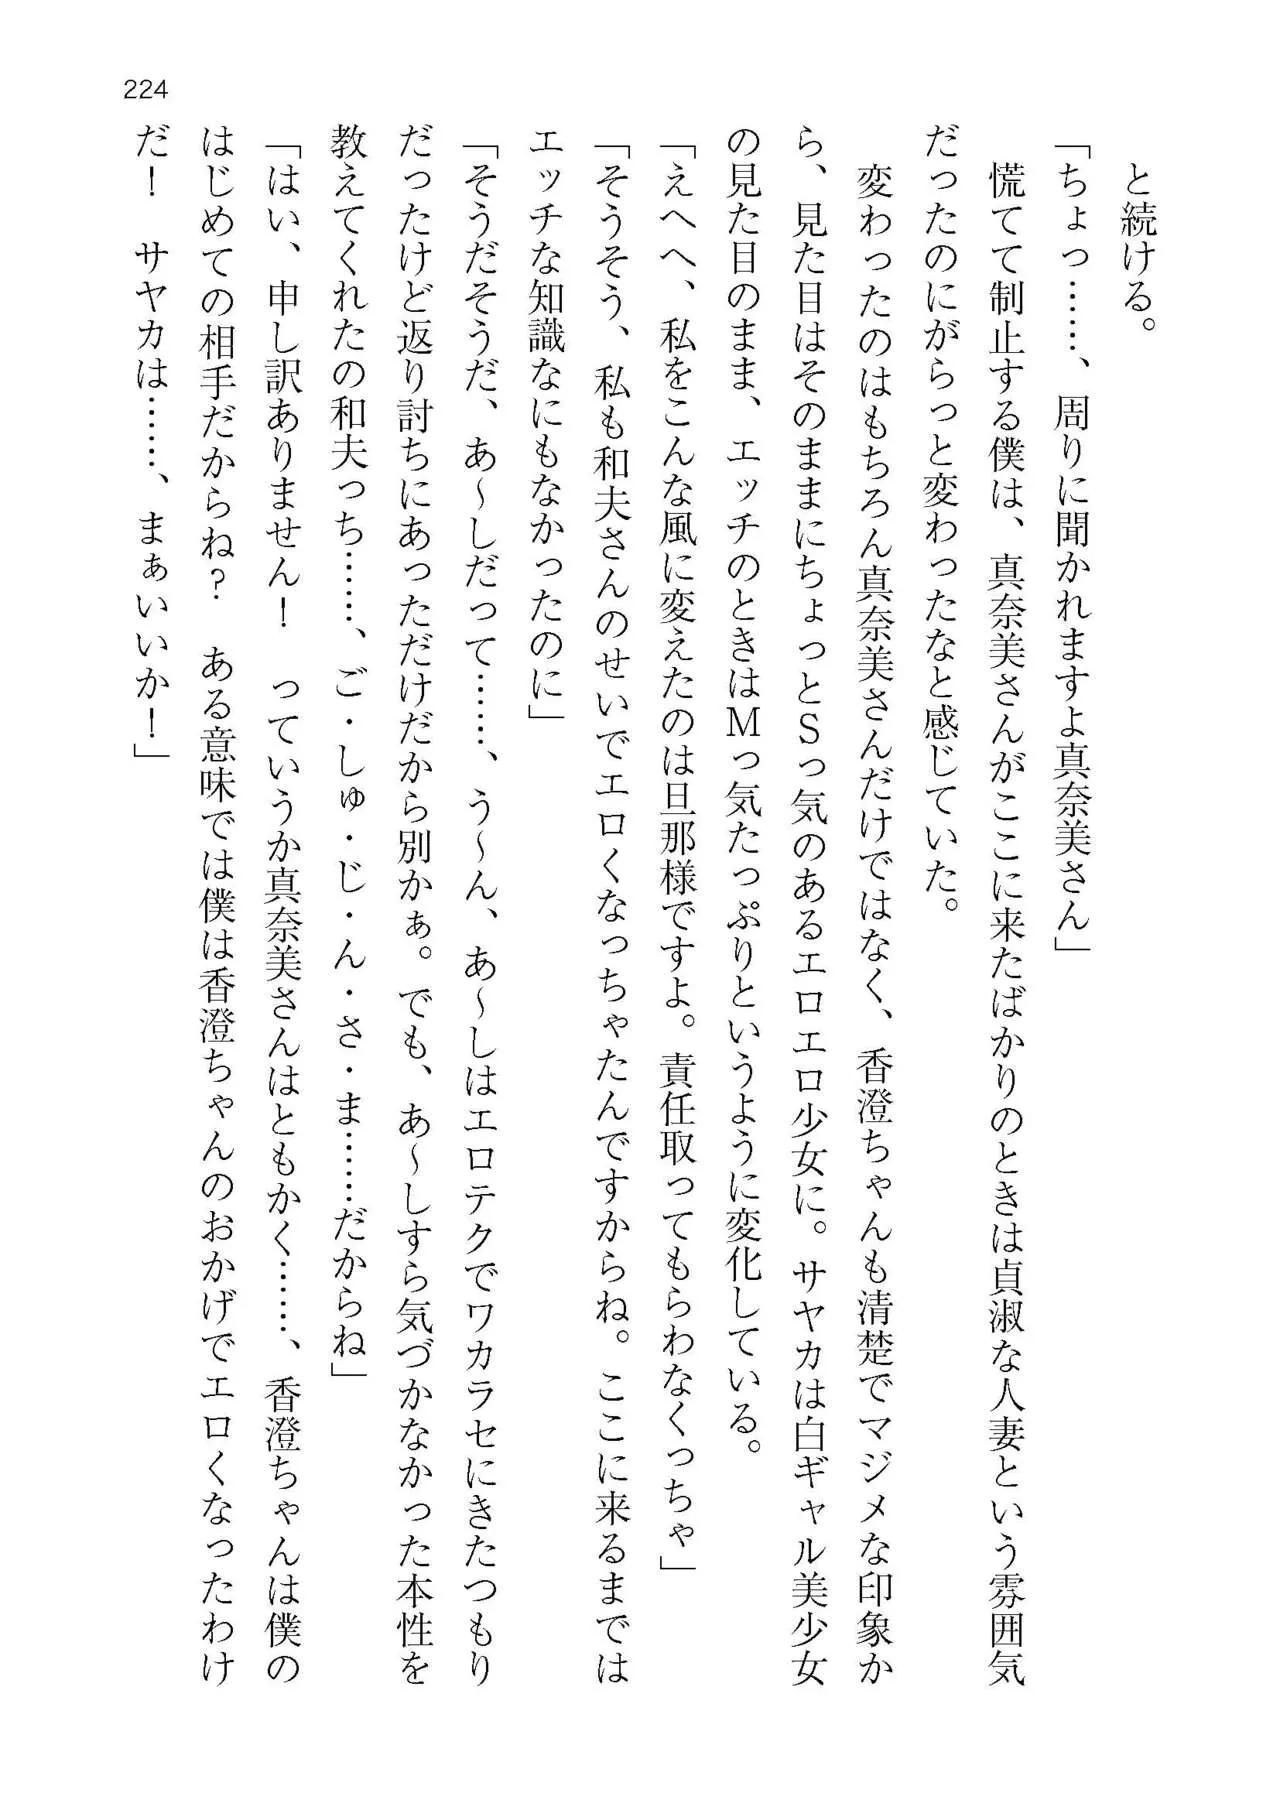 224
と続ける。
「ちょっ……、周りに聞かれますよ真奈美さん」
慌てて制止する僕は、真奈美さんがここに来たばかりのときは貞淑な人妻という雰囲気
だったのにがらっと変わったなと感じていた。
変わったのはもちろん真奈美さんだけではなく、香澄ちゃんも清楚でマジメな印象か
ら、見た目はそのままにちょっとSっ気のあるエロエロ少女に。サヤカは白ギャル美少女
の見た目のまま、エッチのときはMっ気たっぷりというように変化している。
「えへへ、私をこんな風に変えたのは旦那様ですよ。責任取ってもらわなくっちゃ」
「そうそう、私も和夫さんのせいでエロくなっちゃたんですからね。ここに来るまでは
エッチな知識なにもなかったのに」
「そうだそうだ、あ～しだって……、う～ん、あ～しはエロテクでワカラセにきたつもり
だったけど返り討ちにあっただけだから別かぁ。でも、あ～しすら気づかなかった本性を
教えてくれたの和夫っち……、ご・しゅ・じ・ん・さ・ま……だからね」
「はい、申し訳ありません！　っていうか真奈美さんはともかく……、香澄ちゃんは僕の
はじめての相手だからね？　ある意味では僕は香澄ちゃんのおかげでエロくなったわけ
だ！　サヤカは……、まぁいいか！」